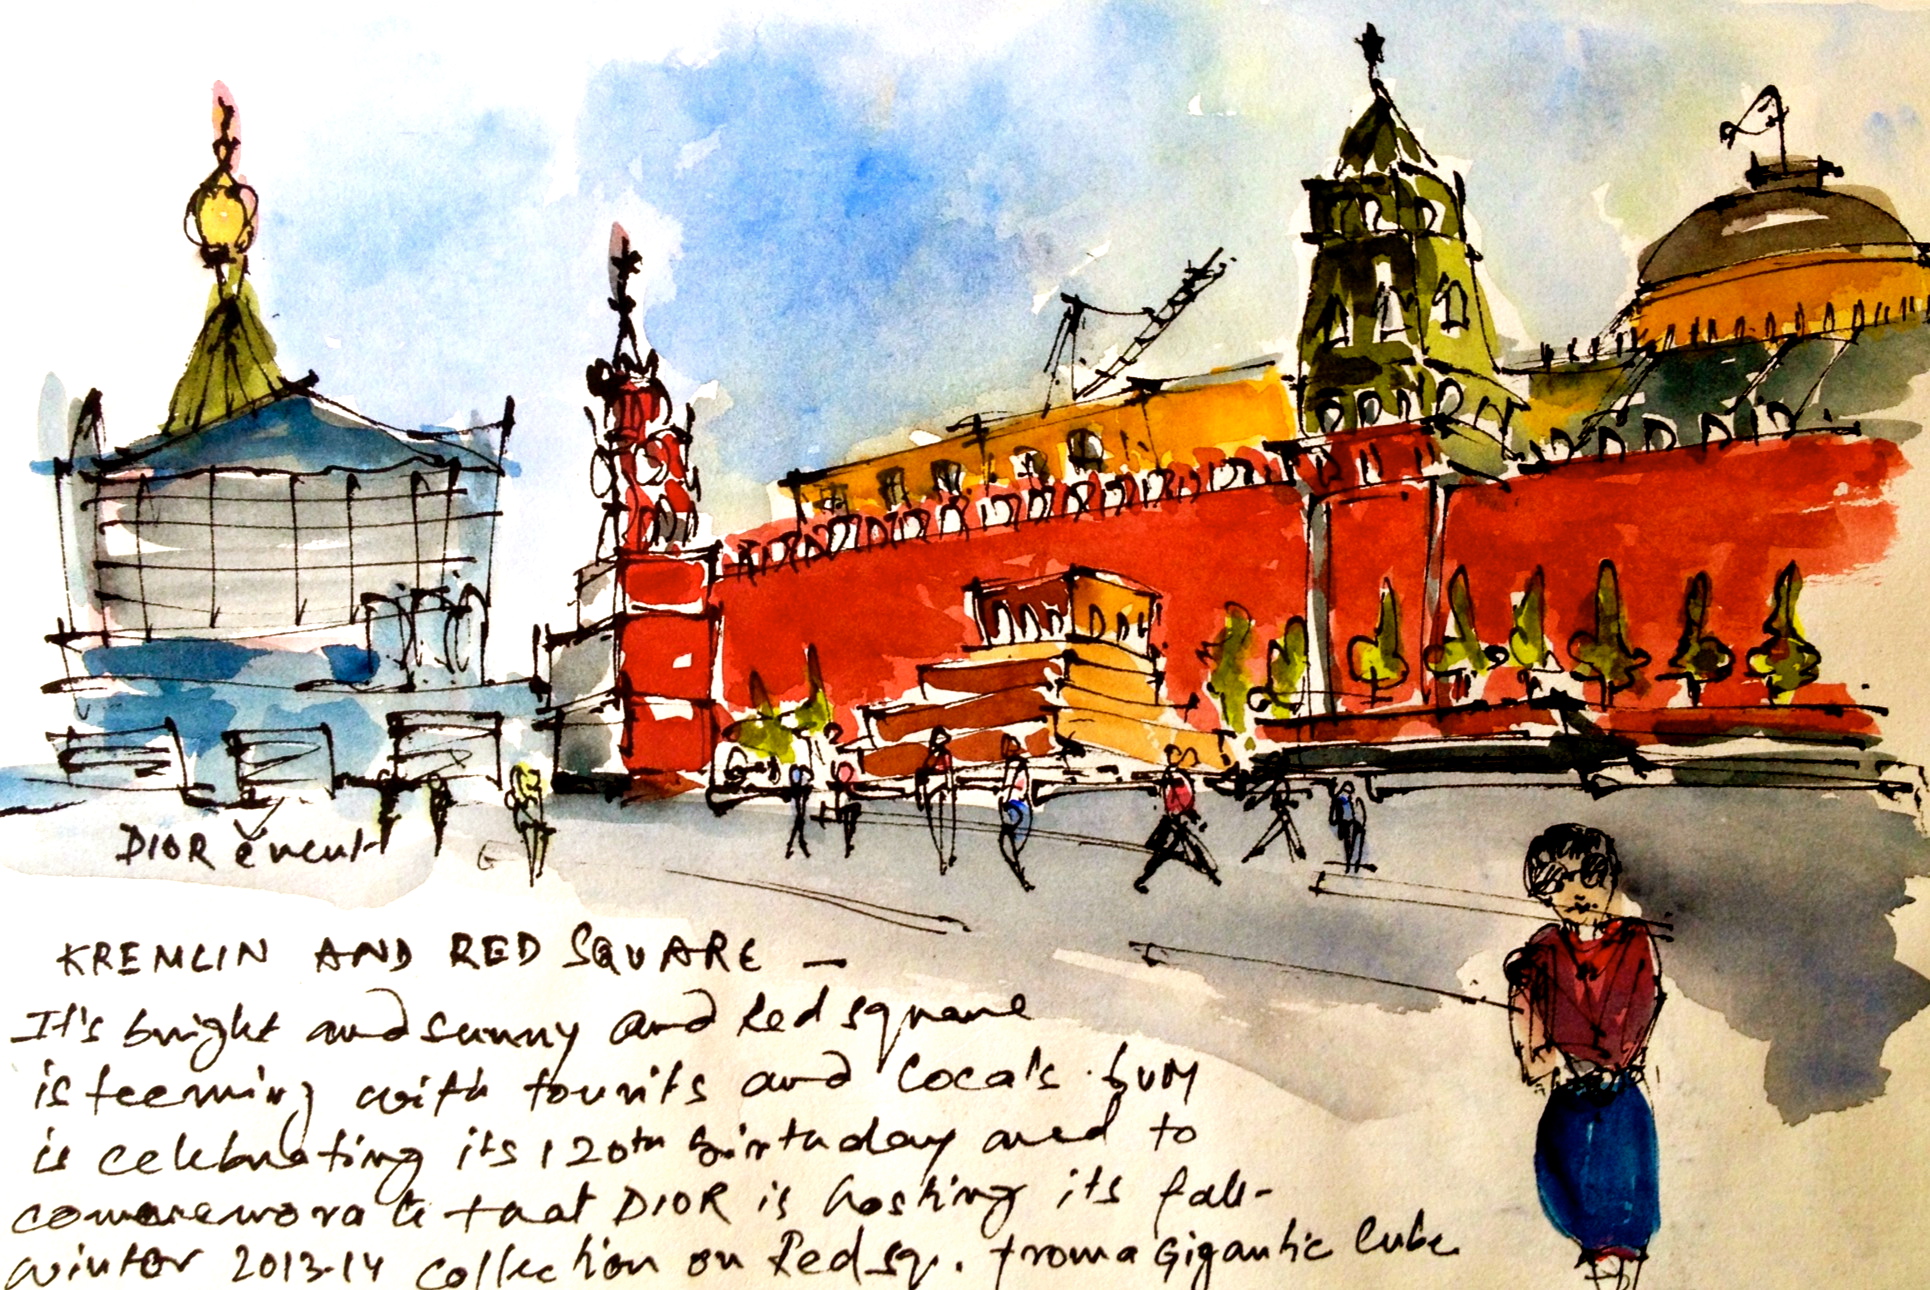 DIOR event
KREMLIN AND RED SQUARE —
It's bright and sunny and Red square
is teeming with tourits and Coca's GUM
is celebrating its 120th birthday and to
commemorate that DIOR is hosting its fall-
winter 2013-14 collection on Red sq. from a Gigantic Cube